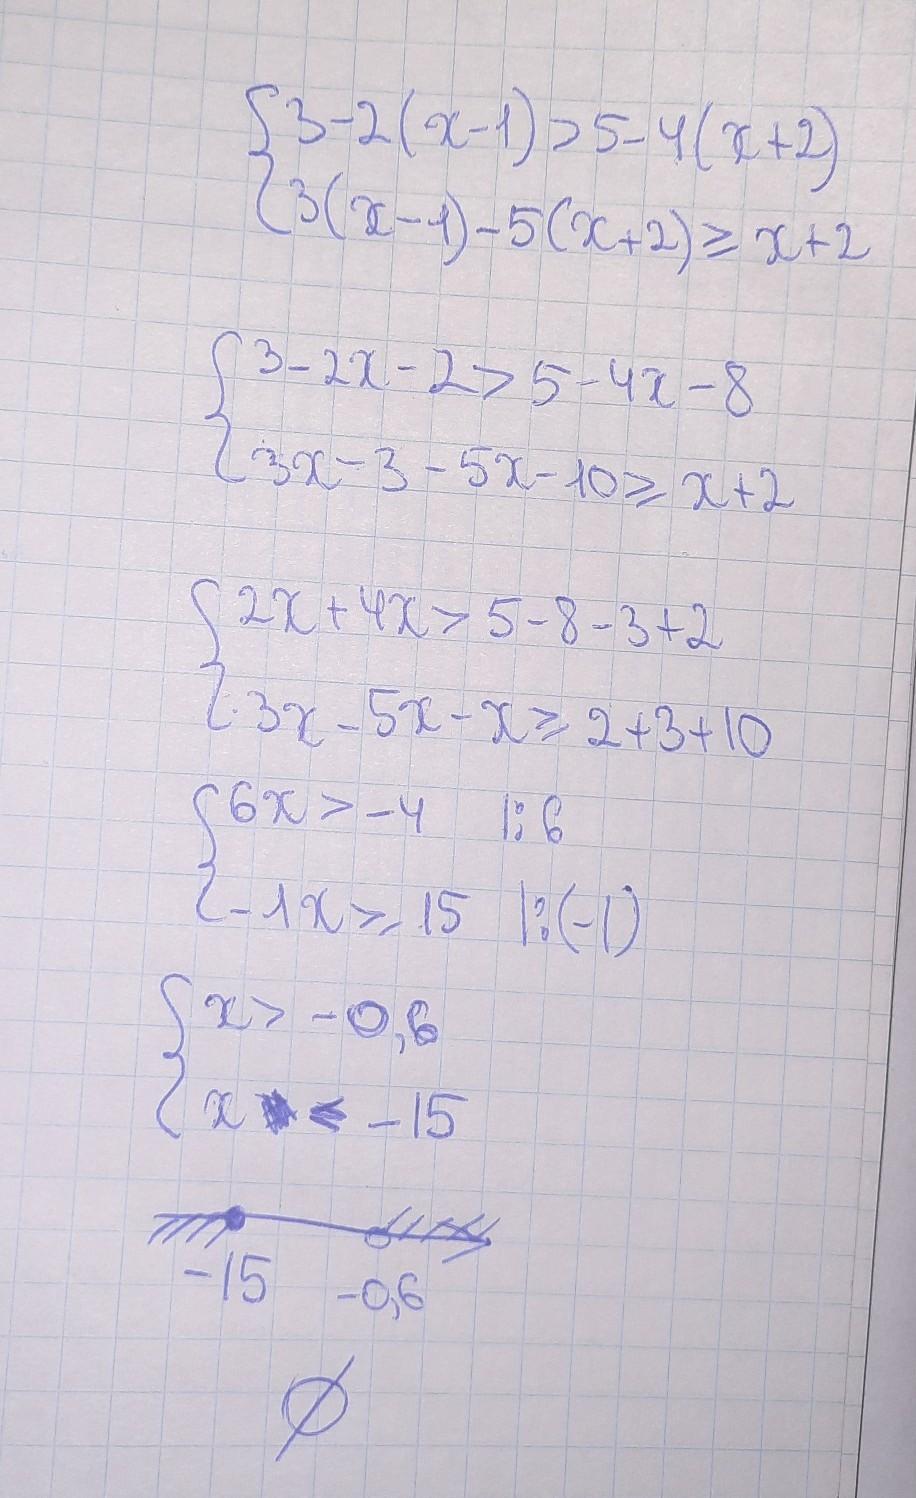 {3-2(x-1)>5-4(x+2)
{3(x-1)-5(x+2)≥x+2
{3-2x-2>5-4x-8
{3x-3-5x-10≥x+2
{2x+4x>5-8-3+2
{3x-5x-x≥2+3+10
{6x>-4 |:6
{-1x≥15 |:(-1)
{x>-0,6
{x≤-15
-15 -0,6
∅